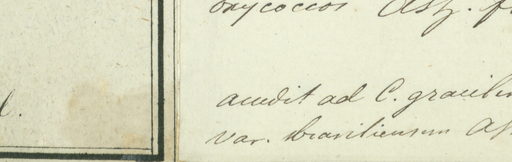 oxycoccos. Asz. f
l.
accedit ad C. gracilem
var. brasiliensem As